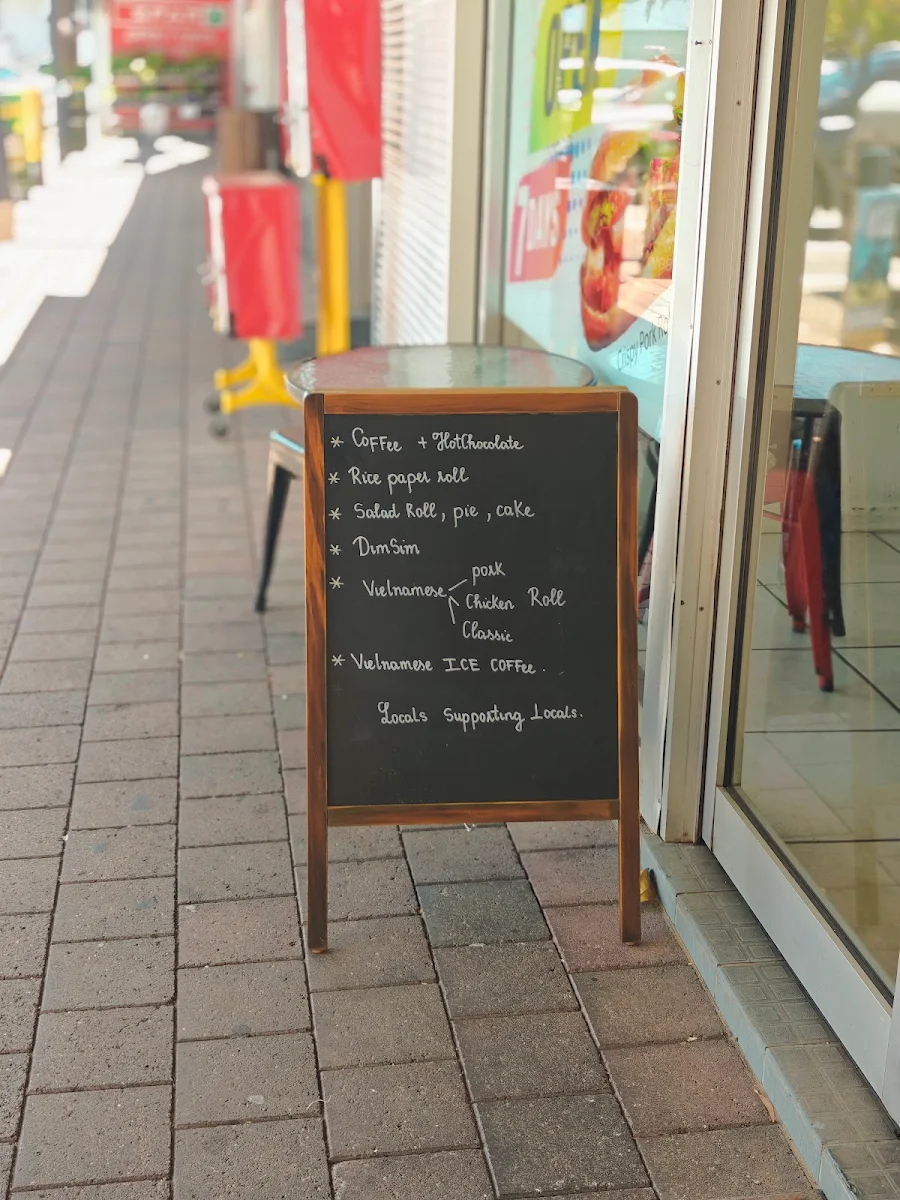 OPEN
7 DAYS
Crispy Pork Ro
* Coffee + HotChocolate
* Rice paper roll
* Salad Roll, pie, cake
* DimSim
* Vietnamese pork
Chicken Roll
Classic
* Vietnamese ICE COFFee.
Locals Supporting Locals.